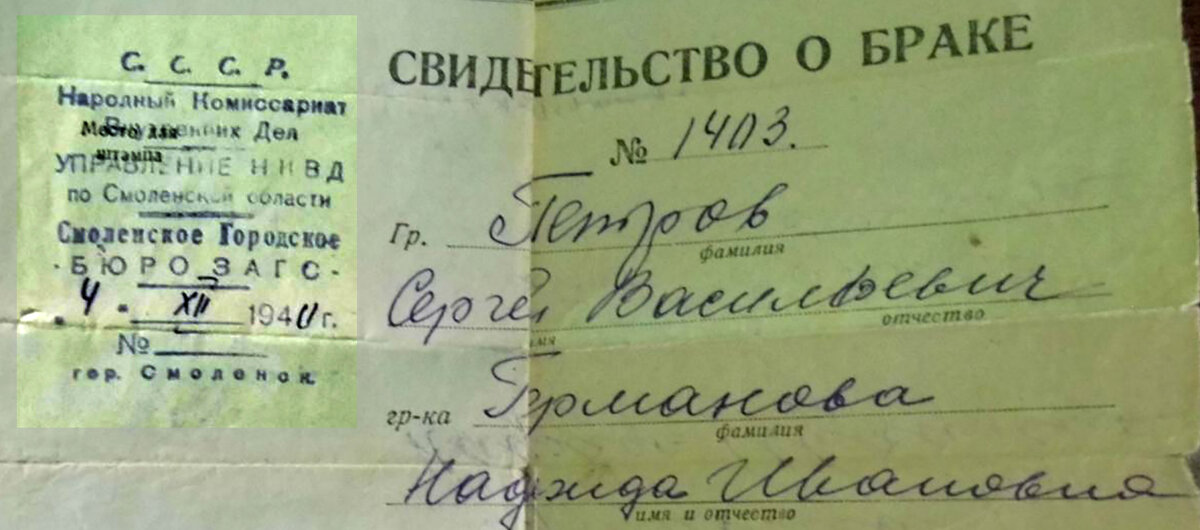 С. С. С. Р.
Народный Комиссариат
Внутренних Дел
Место для
штампа
УПРАВЛЕНИЕ НКВД
по Смоленской области
Смоленское Городское
- БЮРО ЗАГС -
"4" XII 1940 г.
№
гор. Смоленск.
СВИДЕТЕЛЬСТВО О БРАКЕ
№ 1403.
Гр. Петров
фамилия
Сергей Васильевич
имя отчество
гр-ка Германова
фамилия
Надежда Ивановна
имя и отчество